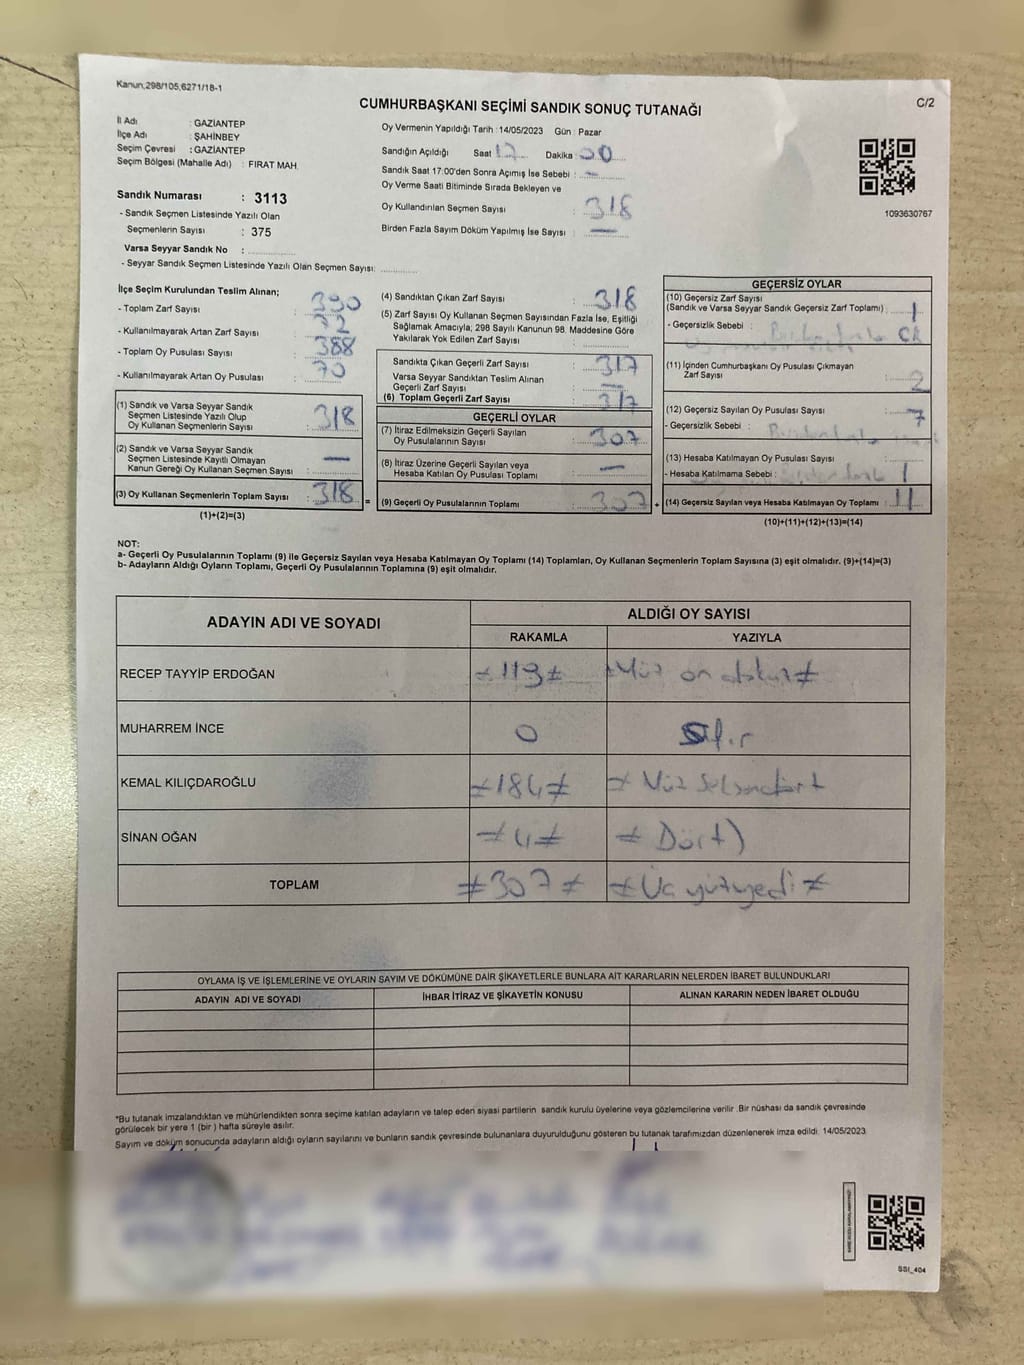 Kanun,298/105,6271/18-1
C/2
CUMHURBAŞKANI SEÇİMİ SANDIK SONUÇ TUTANAĞI
İl Adı : GAZİANTEP
İlçe Adı : ŞAHİNBEY
Seçim Çevresi : GAZİANTEP
Seçim Bölgesi (Mahalle Adı) : FIRAT MAH.
Sandık Numarası : 3113
- Sandık Seçmen Listesinde Yazılı Olan
Seçmenlerin Sayısı : 375
Varsa Seyyar Sandık No :
- Seyyar Sandık Seçmen Listesinde Yazılı Olan Seçmen Sayısı:
Oy Vermenin Yapıldığı Tarih : 14/05/2023 Gün : Pazar
Sandığın Açıldığı Saat 17 Dakika : 00
Sandık Saat 17:00'den Sonra Açımış İse Sebebi : -
Oy Verme Saati Bitiminde Sırada Bekleyen ve
Oy Kullandırılan Seçmen Sayısı : 318
Birden Fazla Sayım Döküm Yapılmış İse Sayısı : —
1093630767
İlçe Seçim Kurulundan Teslim Alınan;
- Toplam Zarf Sayısı : 390
- Kullanılmayarak Artan Zarf Sayısı : 72
- Toplam Oy Pusulası Sayısı : 388
- Kullanılmayarak Artan Oy Pusulası : 70
(1) Sandık ve Varsa Seyyar Sandık
Seçmen Listesinde Yazılı Olup
Oy Kullanan Seçmenlerin Sayısı : 318
(2) Sandık ve Varsa Seyyar Sandık
Seçmen Listesinde Kayıtlı Olmayan
Kanun Gereği Oy Kullanan Seçmen Sayısı : —
(3) Oy Kullanan Seçmenlerin Toplam Sayısı : 318 =
(1)+(2)=(3)
(4) Sandıktan Çıkan Zarf Sayısı : 318
(5) Zarf Sayısı Oy Kullanan Seçmen Sayısından Fazla İse, Eşitliği
Sağlamak Amacıyla; 298 Sayılı Kanunun 98. Maddesine Göre
Yakılarak Yok Edilen Zarf Sayısı :
Sandıkta Çıkan Geçerli Zarf Sayısı : 317
Varsa Seyyar Sandıktan Teslim Alınan
Geçerli Zarf Sayısı : —
(6) Toplam Geçerli Zarf Sayısı : 317
GEÇERLİ OYLAR
(7) İtiraz Edilmeksizin Geçerli Sayılan
Oy Pusulalarının Sayısı : 307
(8) İtiraz Üzerine Geçerli Sayılan veya
Hesaba Katılan Oy Pusulası Toplamı : —
(9) Geçerli Oy Pusulalarının Toplamı : 307 +
GEÇERSİZ OYLAR
(10) Geçersiz Zarf Sayısı
(Sandık ve Varsa Seyyar Sandık Geçersiz Zarf Toplamı) : 1
- Geçersizlik Sebebi :
(11) İçinden Cumhurbaşkanı Oy Pusulası Çıkmayan
Zarf Sayısı : 2
(12) Geçersiz Sayılan Oy Pusulası Sayısı : 7
- Geçersizlik Sebebi :
(13) Hesaba Katılmayan Oy Pusulası Sayısı :
- Hesaba Katılmama Sebebi : 1
(14) Geçersiz Sayılan veya Hesaba Katılmayan Oy Toplamı : 11
(10)+(11)+(12)+(13)=(14)
NOT:
a- Geçerli Oy Pusulalarının Toplamı (9) ile Geçersiz Sayılan veya Hesaba Katılmayan Oy Toplamı (14) Toplamları, Oy Kullanan Seçmenlerin Toplam Sayısına (3) eşit olmalıdır. (9)+(14)=(3)
b- Adayların Aldığı Oyların Toplamı, Geçerli Oy Pusulalarının Toplamına (9) eşit olmalıdır.
ADAYIN ADI VE SOYADI
ALDIĞI OY SAYISI
RAKAMLA YAZIYLA
RECEP TAYYİP ERDOĞAN ≠119≠ ≠Yüz on dokuz≠
MUHARREM İNCE 0 Sıfır
KEMAL KILIÇDAROĞLU ≠184≠ ≠ Yüz Seksendört
SİNAN OĞAN ≠4≠ ≠ Dört)
TOPLAM ≠307≠ ≠Üc yüzyedi≠
OYLAMA İŞ VE İŞLEMLERİNE VE OYLARIN SAYIM VE DÖKÜMÜNE DAİR ŞİKAYETLERLE BUNLARA AİT KARARLARIN NELERDEN İBARET BULUNDUKLARI
ADAYIN ADI VE SOYADI İHBAR İTİRAZ VE ŞİKAYETİN KONUSU ALINAN KARARIN NEDEN İBARET OLDUĞU
*Bu tutanak imzalandıktan ve mühürlendikten sonra seçime katılan adayların ve talep eden siyasi partilerin sandık kurulu üyelerine veya gözlemcilerine verilir .Bir nüshası da sandık çevresinde
görülecek bir yere 1 (bir ) hafta süreyle asılır.
Sayım ve döküm sonucunda adayların aldığı oyların sayılarını ve bunların sandık çevresinde bulunanlara duyurulduğunu gösteren bu tutanak tarafımızdan düzenlenerek imza edildi. 14/05/2023
SSI_404